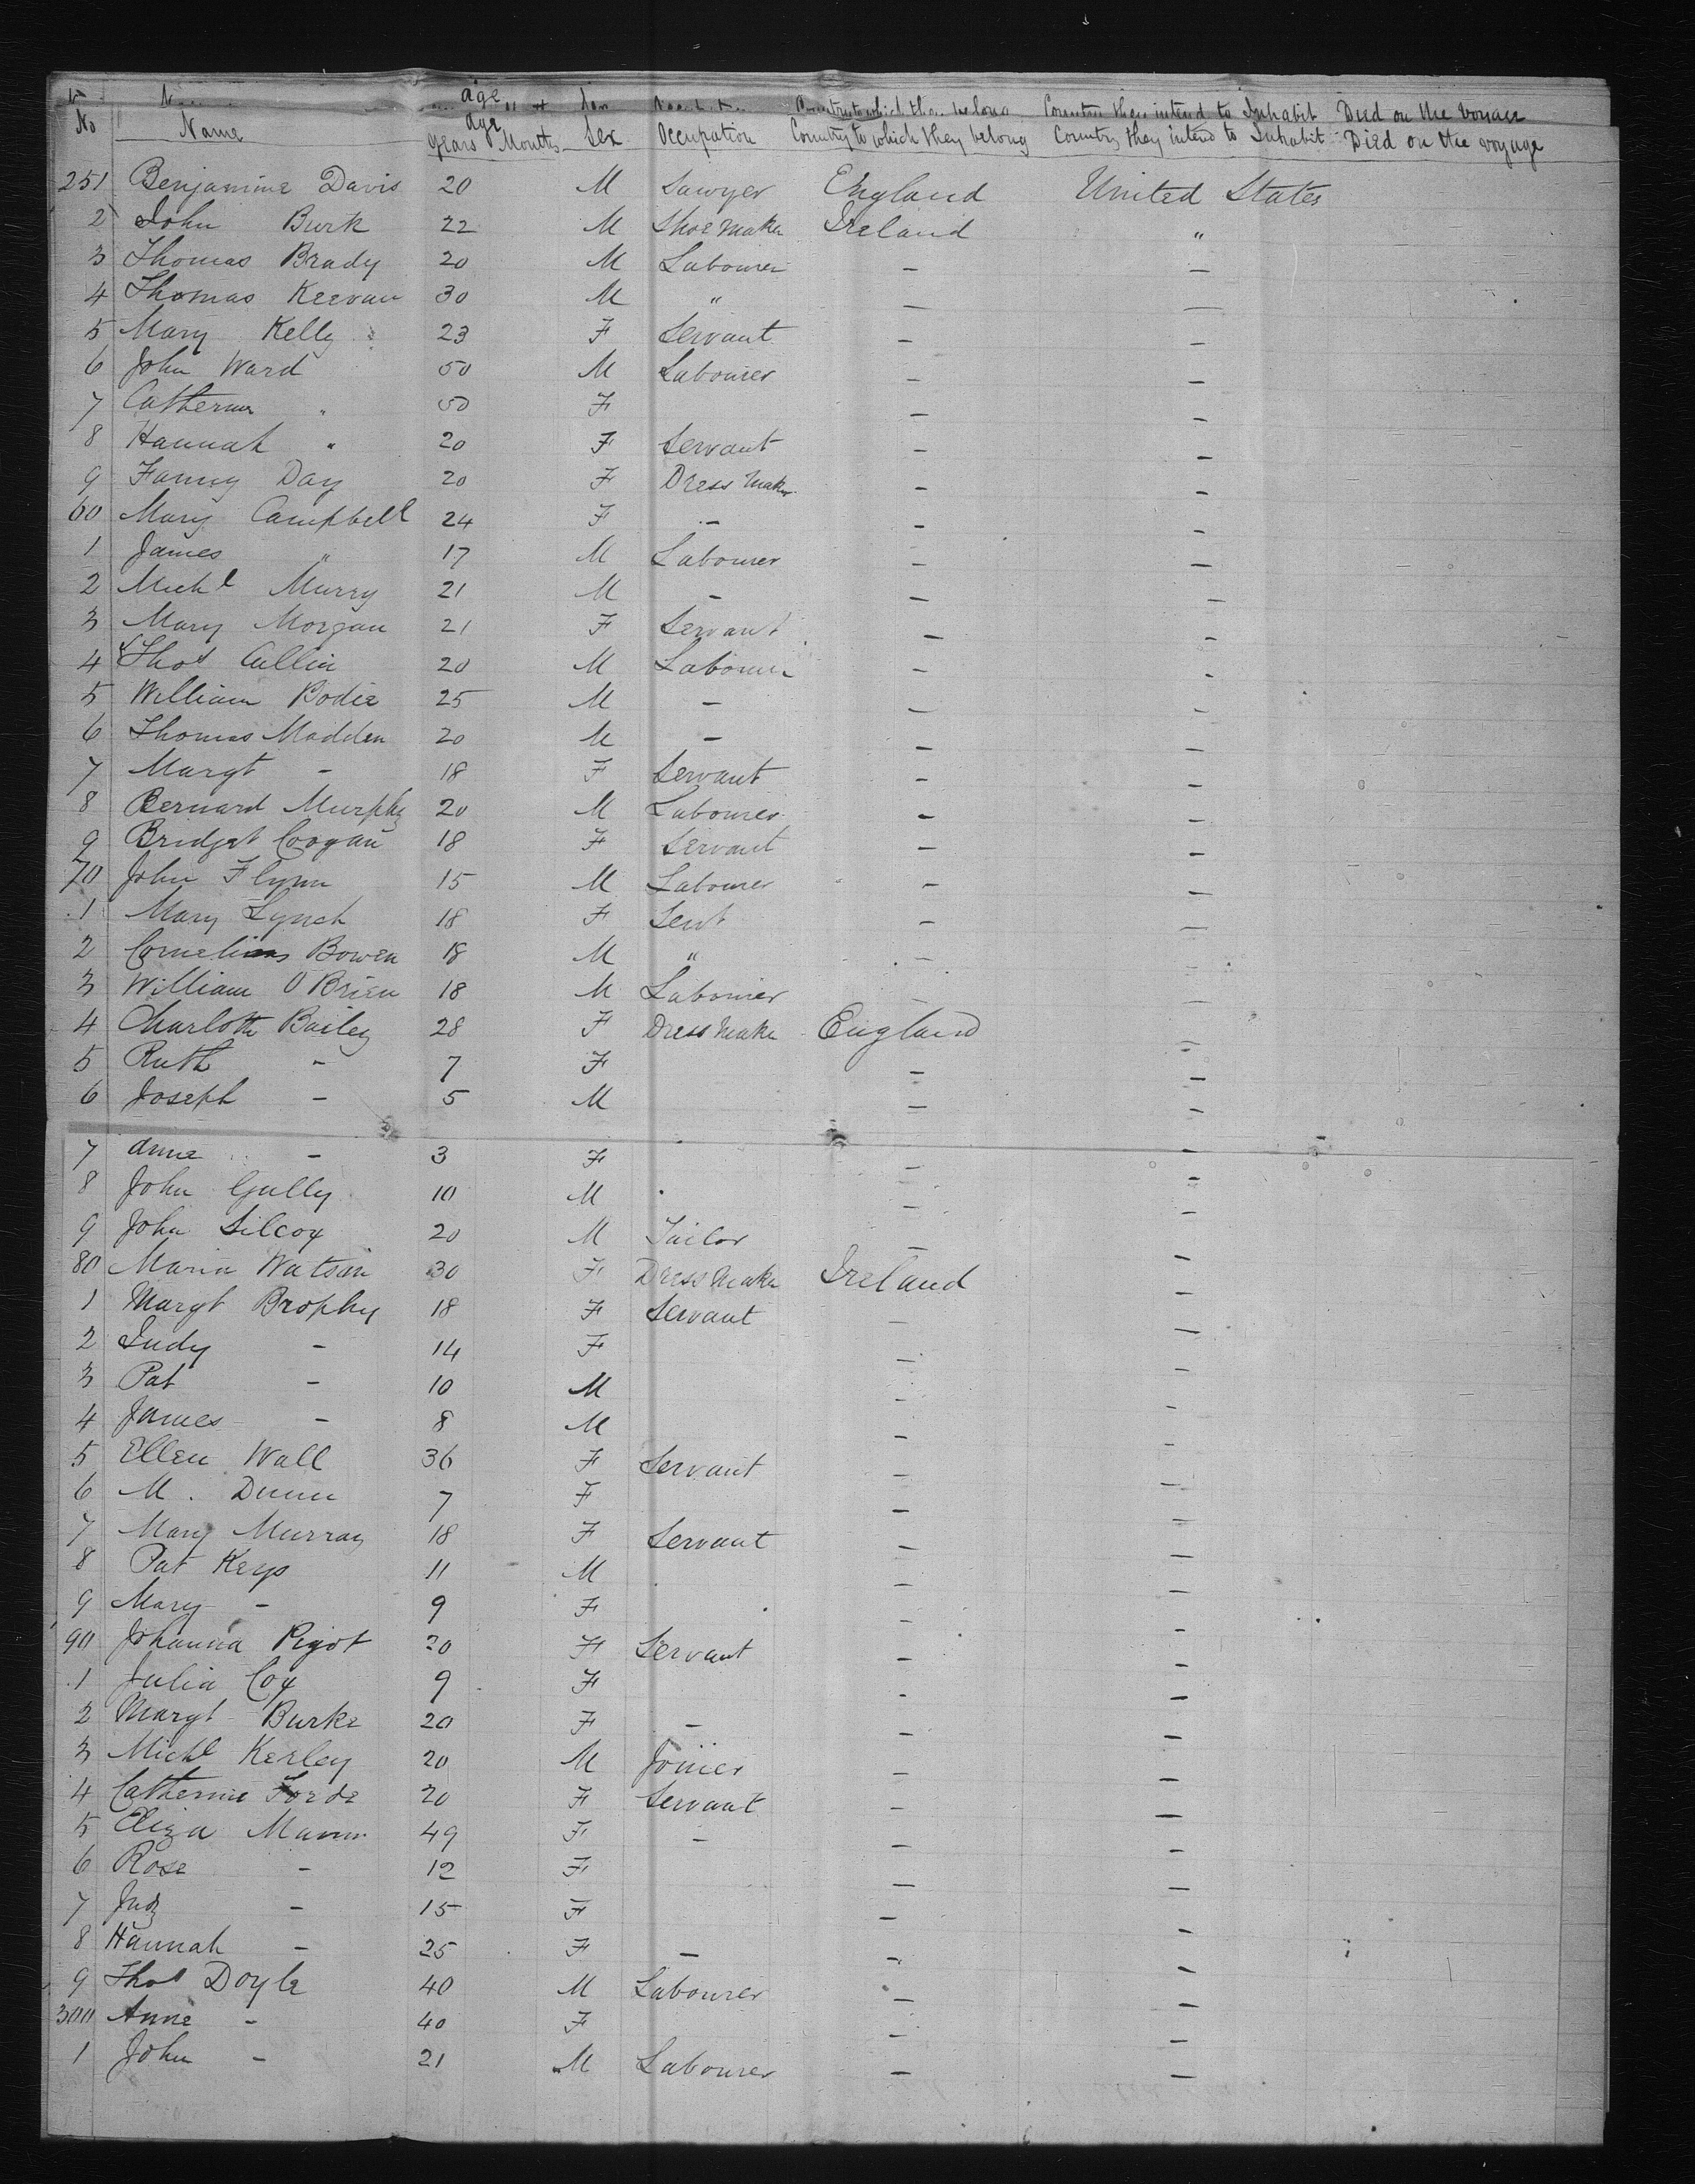 No Name age years Months Sex Occupation Country to which they belong Country they intend to Inhabit Died on the voyage
251 Benjamine Davis 20 M Sawyer England United States
2 John Burk 22 M Shoe Maker Ireland "
3 Thomas Brady 20 M Labourer - -
4 Thomas Keevan 30 M " - -
5 Mary Kelly 23 F Servant - -
6 John Ward 50 M Labourer - -
7 Catherine " 50 F - -
8 Hannah " 20 F Servant - -
9 Fanny Day 20 F Dress Maker - -
60 Mary Campbell 24 F - - -
1 James " 17 M Labourer - -
2 Michl Murry 21 M - - -
3 Mary Morgan 21 F Servant - -
4 Thos Cullin 20 M Labourer - -
5 William Bodie 25 M - - -
6 Thomas Madden 20 M - - -
7 Margt - 18 F Servant - -
8 Bernard Murphy 20 M Labourer - -
9 Bridget Cogan 18 F Servant - -
70 John Flynn 15 M Labourer - -
1 Mary Lynch 18 F Sevt - -
2 Cornelius Bowen 18 M " - -
3 William O Brien 18 M Labourer - -
4 Charlotte Bailey 28 F Dress Maker England -
5 Ruth - 7 F - -
6 Joseph - 5 M - -
7 Anne - 3 F - -
8 John Gully 10 M - -
9 John Silcox 20 M Tailor - -
80 Maria Watson 30 F Dress Maker Ireland -
1 Margt Brophy 18 F Servant - -
2 Judy - 14 F - -
3 Pat - 10 M - -
4 James - 8 M - -
5 Ellen Wall 36 F Servant - -
6 M. Dunn 7 F - -
7 Mary Murray 18 F Servant - -
8 Pat Keys 11 M - -
9 Mary - 9 F - -
90 Johanna Pigot 20 F Servant - -
1 Julia Cox 9 F - -
2 Margt Burke 20 F - - -
3 Michl Kerley 20 M Joiner - -
4 Catherine Forde 20 F Servant - -
5 Eliza 49 F - - -
6 Rose - 12 F - -
7 Judy - 15 F - -
8 Hannah - 25 F - - -
9 Thos Doyle 40 M Labourer - -
300 Anne - 40 F - -
1 John - 21 M Labourer - -